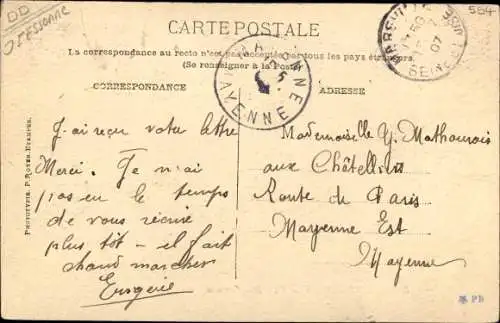 DD
ESSONNE
584
CARTE POSTALE
La correspondance au recto n'est pas acceptée par tous les pays étrangers.
(Se renseigner à la Poste)
CORRESPONDANCE
ADRESSE
MAYENNE
MAYENNE
07
SEINE
J'ai reçu votre lettre
Merci. Je n'ai
pas eu le temps
de vous écrire
plus tôt - il fait
chaud marcher
Mademoiselle Y. Mathourois
aux Châtelliers
Route de Paris
Mayenne Est
Mayenne
PHOTOTYPIE P. ROYER, ETAMPES.
PB